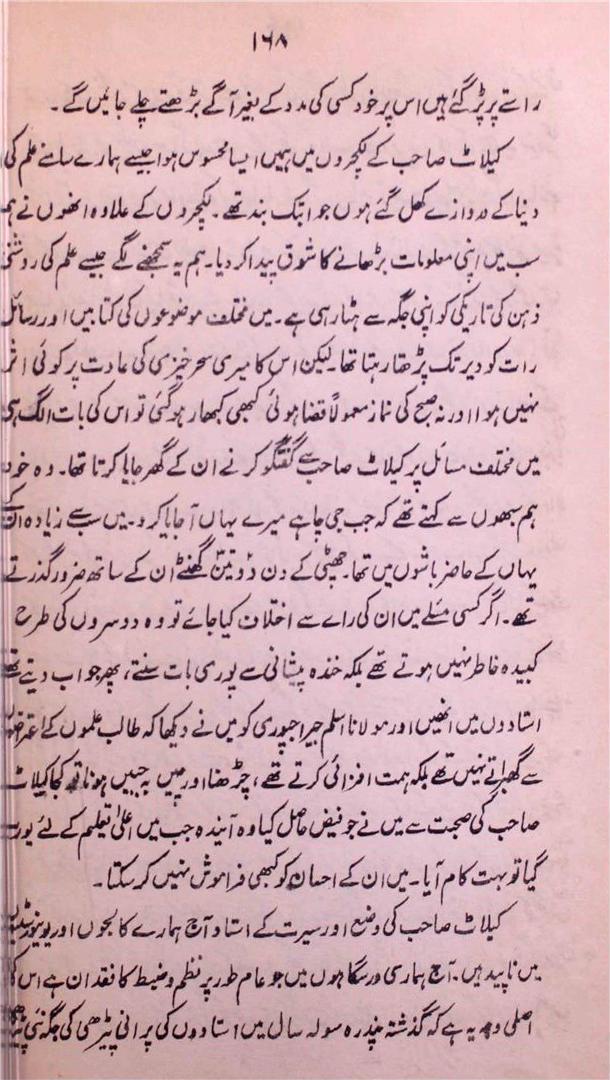 ۱۶۸
راستے پر پڑ گئے ہیں اس پر خود کسی کی مدد کے بغیر آگے بڑھتے چلے جائیں گے۔
کیلاٹ صاحب کے لکچروں میں ہمیں ایسا محسوس ہوا جیسے ہمارے سامنے علم کی
دنیا کے دروازے کھل گئے ہوں جو ابتک بند تھے۔ لکچروں کے علاوہ انھوں نے ہم
سب میں اپنی معلومات بڑھانے کا شوق پیدا کر دیا۔ ہم یہ سمجھنے لگے جیسے علم کی روشنی
ذہن کی تاریکی کو اپنی جگہ سے ہٹا رہی ہے۔ میں مختلف موضوعوں کی کتابیں اور رسائل
رات کو دیر تک پڑھتا رہتا تھا۔ لیکن اس کا میری سحر خیزی کی عادت پر کوئی اثر
نہیں ہوا اور نہ صبح کی نماز معمولاً قضا ہوئی کبھی کبھار ہو گئی تو اس کی بات الگ ہے
میں مختلف مسائل پر کیلاٹ صاحب سے گفتگو کرنے ان کے گھر جایا کرتا تھا۔ وہ خود
ہم سبھوں سے کہتے تھے کہ جب جی چاہے میرے یہاں آ جایا کرو۔ میں سب سے زیادہ ان کے
یہاں کے حاضر باشوں میں تھا۔ چھٹی کے دن دو تین گھنٹے ان کے ساتھ ضرور گذرتے
تھے۔ اگر کسی مسئلے میں ان کی رائے سے اختلاف کیا جائے تو وہ دوسروں کی طرح
کبیدہ خاطر نہیں ہوتے تھے بلکہ خندہ پیشانی سے پوری بات سنتے، پھر جواب دیتے تھے
استادوں میں انھیں اور مولانا اسلم جیراجپوری کو میں نے دیکھا کہ طالب علموں کے اعتراضوں
سے گھبراتے نہیں تھے بلکہ ہمت افزائی کرتے تھے، چڑھنا اور چیں بہ جبیں ہونا تو کجا کیلاٹ
صاحب کی صحبت سے میں نے جو فیض حاصل کیا وہ آیندہ جب میں اعلیٰ تعلیم کے لئے یورپ
گیا تو بہت کام آیا۔ میں ان کے احسان کو کبھی فراموش نہیں کر سکتا۔
کیلاٹ صاحب کی وضع اور سیرت کے استاد آج ہمارے کالجوں اور یونیورسٹیوں
میں ناپید ہیں۔ آج ہماری درسگاہوں میں جو عام طور پر نظم و ضبط کا فقدان ہے اس کی
اصلی وجہ یہ ہے کہ گذشتہ پندرہ سولہ سال میں استادوں کی پرانی پیڑھی کی جگہ نئی